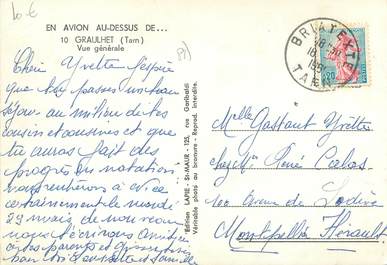 10 €
EN AVION AU-DESSUS DE...
10 GRAULHET (Tarn)
Vue générale
Chère Yvette j'espère
que tu passes un beau
séjour au milieu de tes
cousins et cousines et que
tu auras fait des
progrès en natation
nous rentrerons à
certainement le mardi
29 mais de nouveau
nous t'écrirons amitiés
à tes parents et grosses bises
pour toi et famille
Edition LAPIE - St-MAUR - 125, rue Garibaldi
Véritable photo au bromure - Reprod. Interdite.
BRIATEXTE
TARN
0,20
Melle Gastant Yvette
chez Mr René Calas
100 Avenue de Lodève
Montpellier Hérault